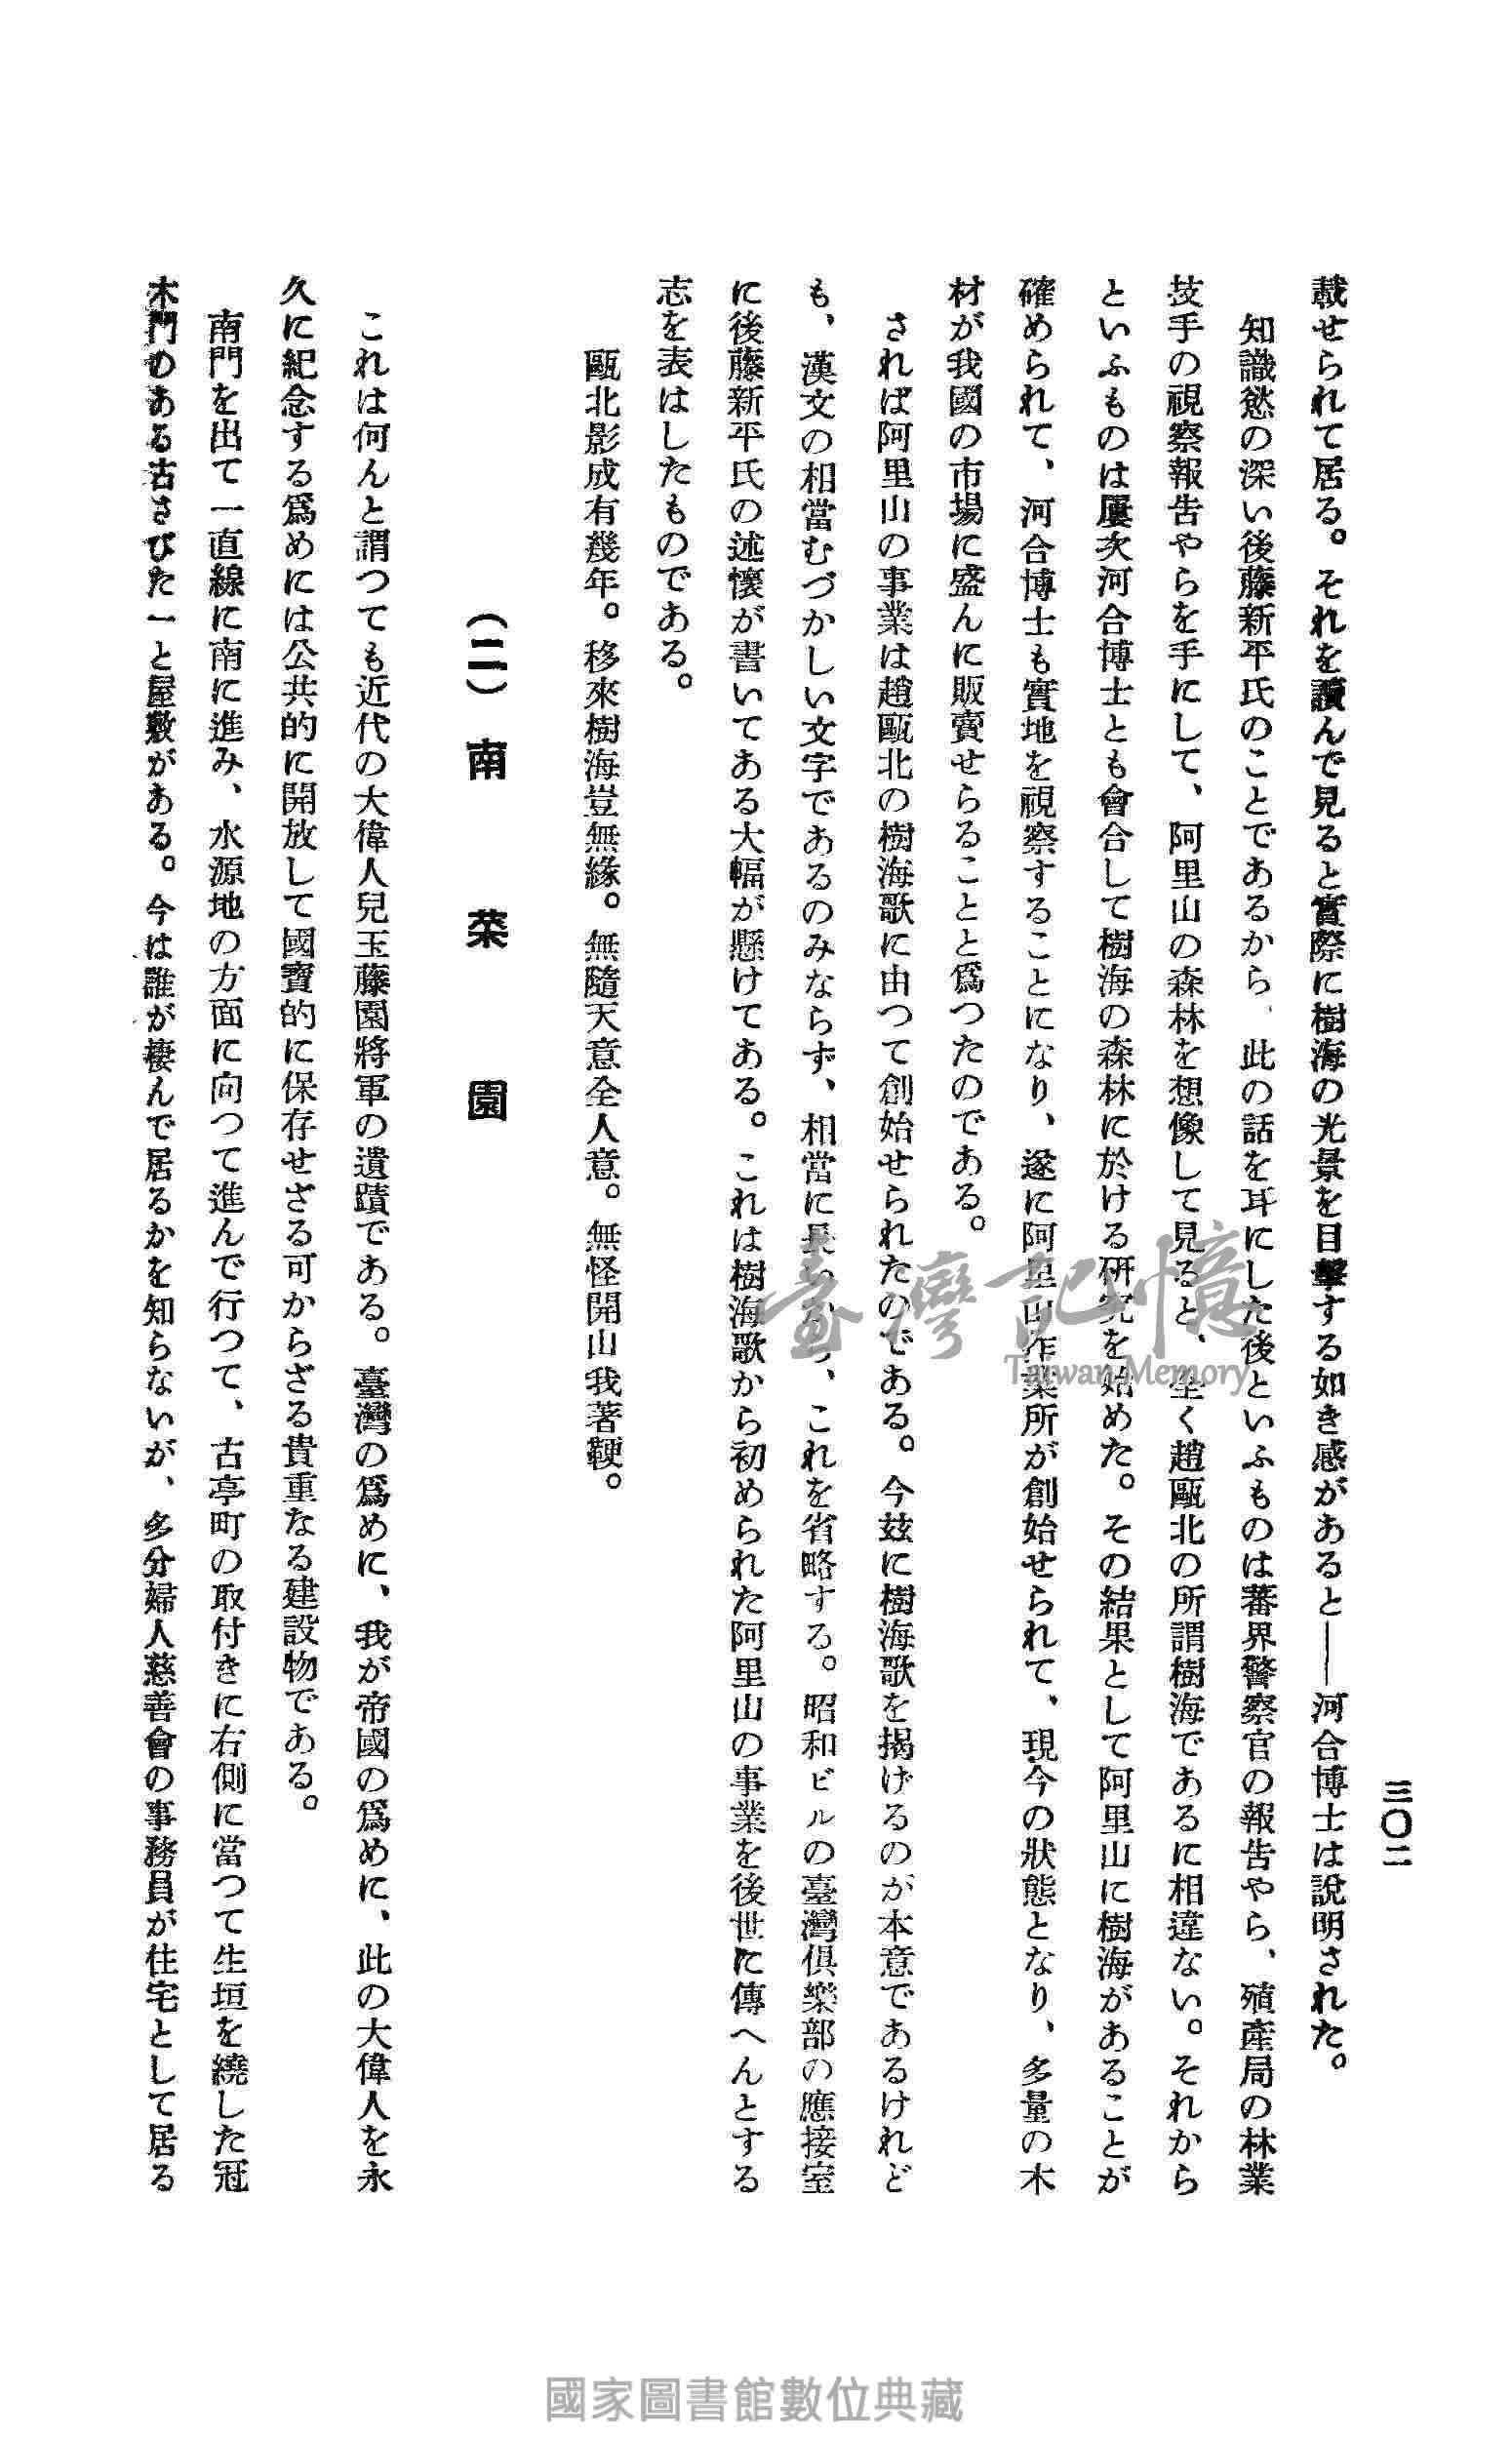 三〇二
載せられて居る。それを讀んで見ると實際に樹海の光景を目擊する如き感があると――河合博士は說明された。
知識慾の深い後藤新平氏のことであるから、此の話を耳にした後といふものは蕃界警察官の報告やら、殖產局の林業
技手の視察報告やらを手にして、阿里山の森林を想像して見ると、全く趙甌北の所謂樹海であるに相違ない。それから
といふものは屢次河合博士とも會合して樹海の森林に於ける硏究を始めた。その結果として阿里山に樹海があることが
確められて、河合博士も實地を視察することになり、遂に阿里山作業所が創始せられて、現今の狀態となり、多量の木
材が我國の市場に盛んに販賣せらることと爲つたのである。
されば阿里山の事業は趙甌北の樹海歌に由つて創始せられたのである。今玆に樹海歌を揭げるのが本意であるけれど
も、漢文の相當むづかしい文字であるのみならず、相當に長いから、これを省略する。昭和ビルの臺灣俱樂部の應接室
に後藤新平氏の述懷が書いてある大幅が懸けてある。これは樹海歌から初められた阿里山の事業を後世に傳へんとする
志を表はしたものである。
甌北影成有幾年。移來樹海豈無緣。無隨天意全人意。無怪開山我著鞭。
（二）南菜園
これは何んと謂つても近代の大偉人兒玉藤園將軍の遺蹟である。臺灣の爲めに、我が帝國の爲めに、此の大偉人を永
久に紀念する爲めには公共的に開放して國寶的に保存せざる可からざる貴重なる建設物である。
南門を出て一直線に南に進み、水源地の方面に向つて進んで行つて、古亭町の取付きに右側に當つて生垣を繞した冠
木門のある古さびた一と屋敷がある。今は誰が棲んで居るかを知らないが、多分婦人慈善會の事務員が住宅として居る
臺灣記憶
Taiwan Memory
國家圖書館數位典藏